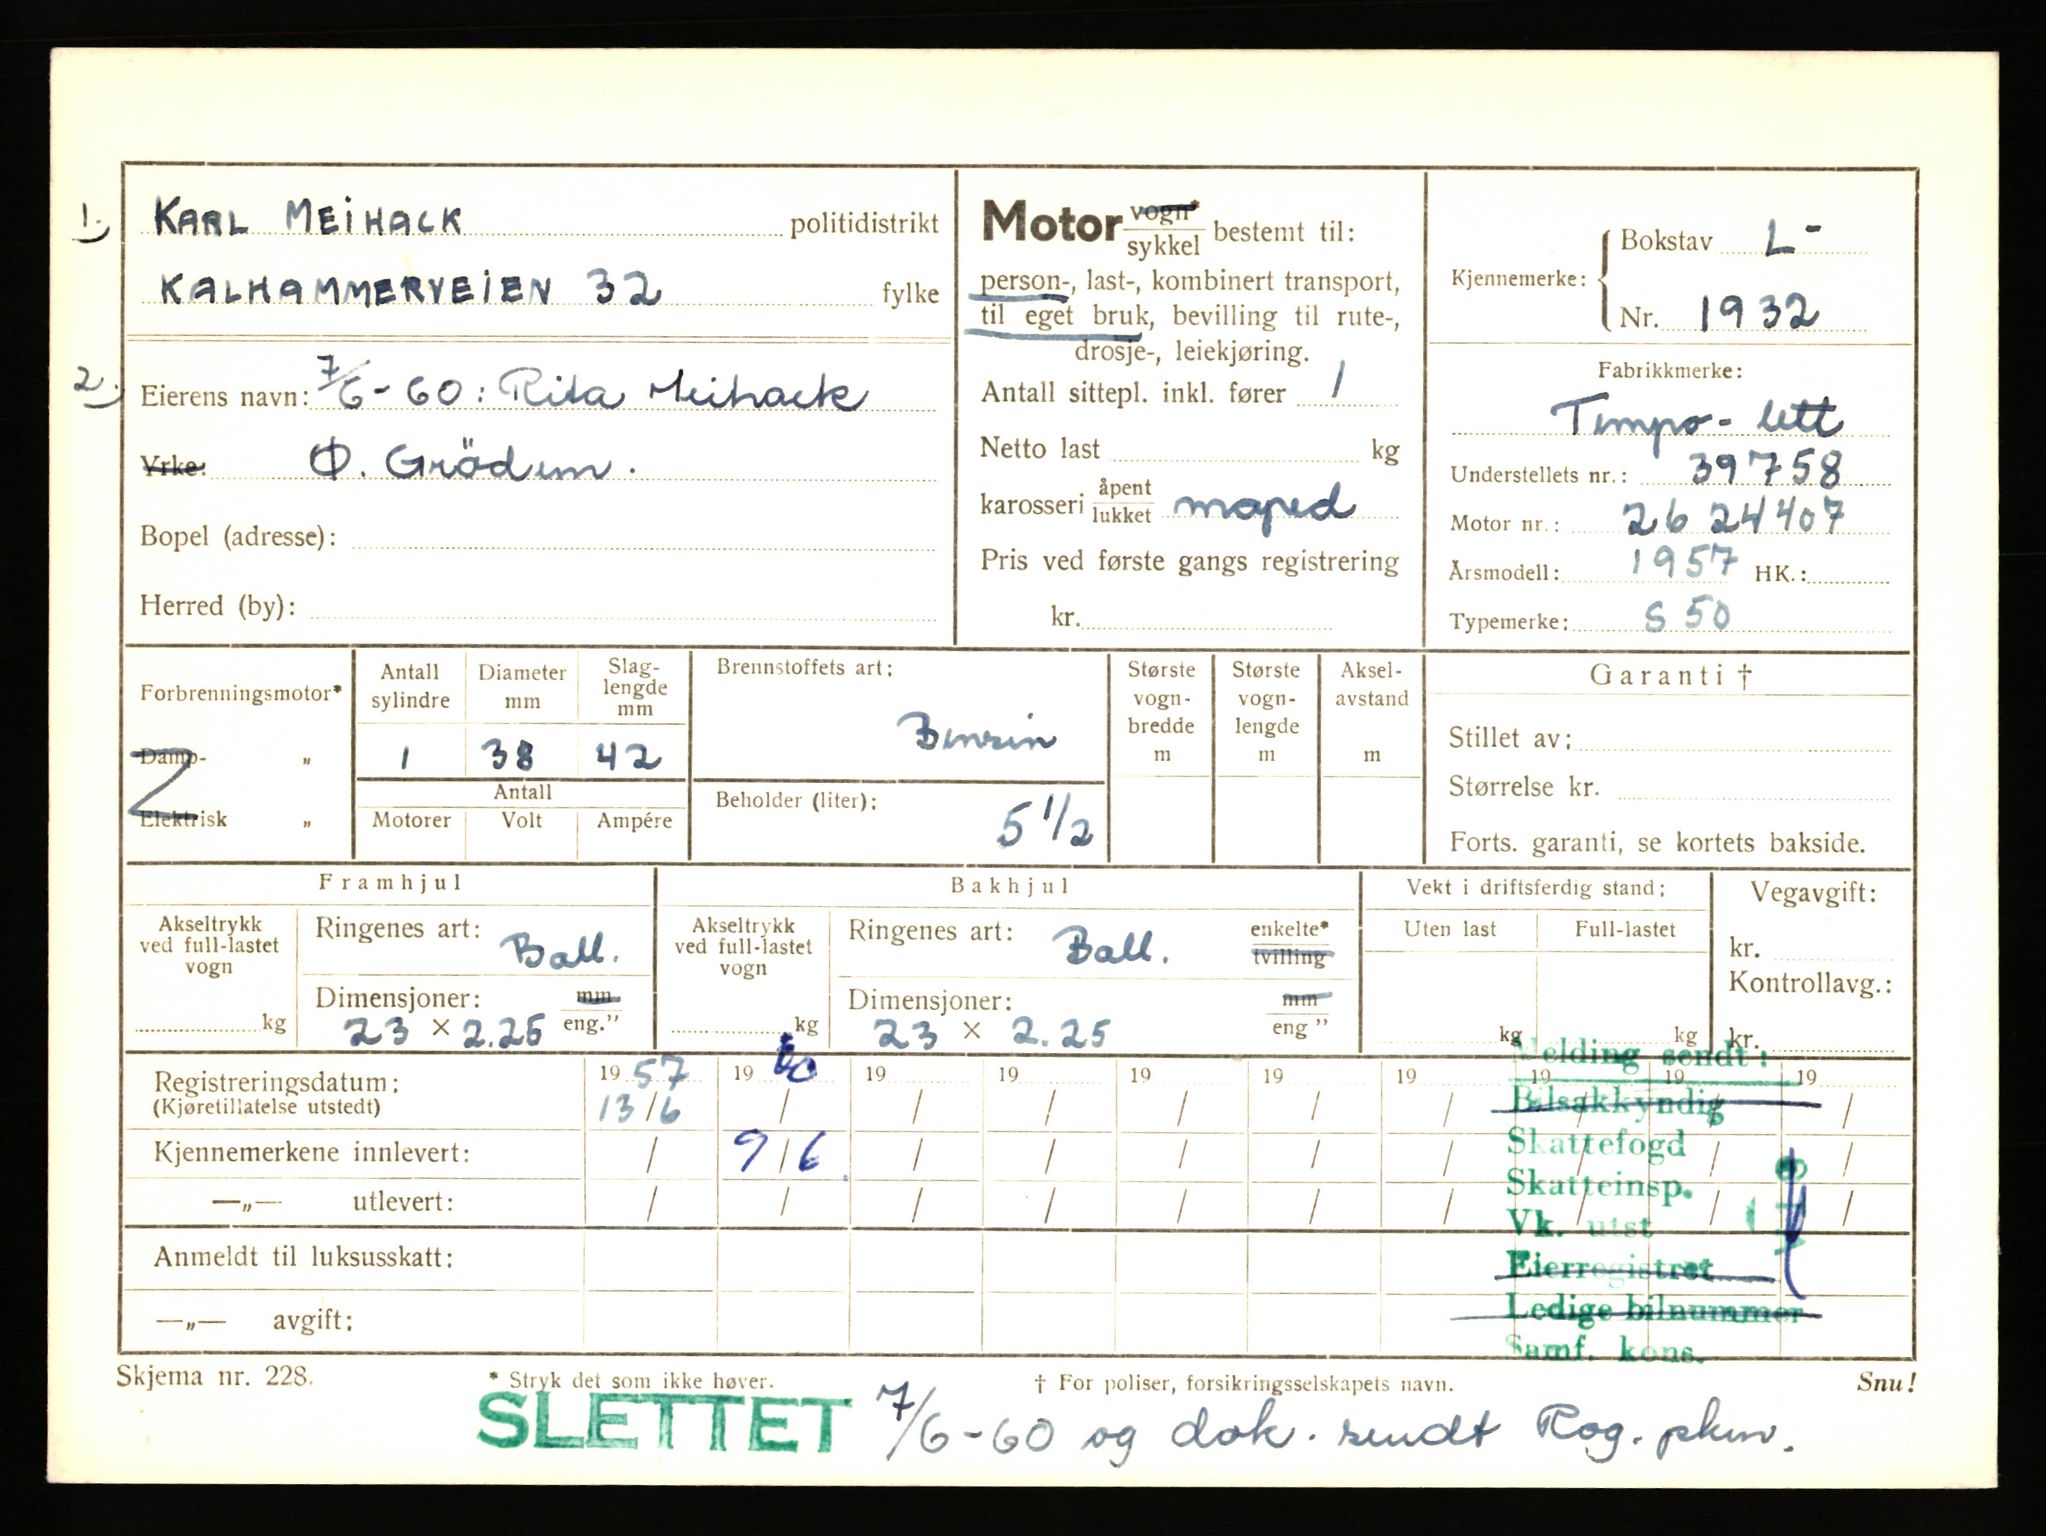 1.
KARL MEIHACK politidistrikt
KALHAMMERVEIEN 32 fylke
2.
Eierens navn: 7/6-60: Rita Meihack
Yrke: Ø. Grödem.
Bopel (adresse):
Herred (by):
Motor vogn* sykkel bestemt til:
person-, last-, kombinert transport,
til eget bruk, bevilling til rute-,
drosje-, leiekjøring.
Antall sittepl. inkl. fører 1
Netto last kg
karosseri åpent lukket moped
Pris ved første gangs registrering
kr.
Kjennemerke: Bokstav L-
Nr. 1932
Fabrikkmerke:
Tempo-lett
Understellets nr.: 39758
Motor nr.: 2624407
Årsmodell: 1957 HK.:
Typemerke: S 50
Forbrenningsmotor*
Damp- „
Elektrisk „
Antall sylindre Diameter mm Slag-lengde mm
1 38 42
Antall
Motorer Volt Ampére
Brennstoffets art:
Bensin
Beholder (liter):
5 1/2
Største vogn-bredde m
Største vogn-lengde m
Aksel-avstand m
Garanti †
Stillet av:
Størrelse kr.
Forts. garanti, se kortets bakside.
Framhjul
Akseltrykk ved full-lastet vogn
kg
Ringenes art: Ball.
Dimensjoner: mm
23 × 2.25 eng."
Bakhjul
Akseltrykk ved full-lastet vogn
kg
Ringenes art: Ball. enkelte* tvilling
Dimensjoner: mm
23 × 2.25 eng "
Vekt i driftsferdig stand:
Uten last Full-lastet
kg kg
Vegavgift:
kr.
Kontrollavg.:
kr.
Registreringsdatum: 19 57 19 60 19 19 19 19 19 19 19 19
(Kjøretillatelse utstedt) 13/6 / / / / / / / / /
Kjennemerkene innlevert: / 9/6 / / / / / / / /
—„— utlevert: / / / / / / / / / /
Anmeldt til luksusskatt:
—„— avgift:
Melding sendt:
Bilsakkyndig
Skattefogd
Skatteinsp.
Vk. utst
Eierregistret
Ledige bilnummer
Samf. kons.
Skjema nr. 228. * Stryk det som ikke høver. † For poliser, forsikringsselskapets navn. Snu!
SLETTET 7/6-60 og dok. sendt Rog. pkm.